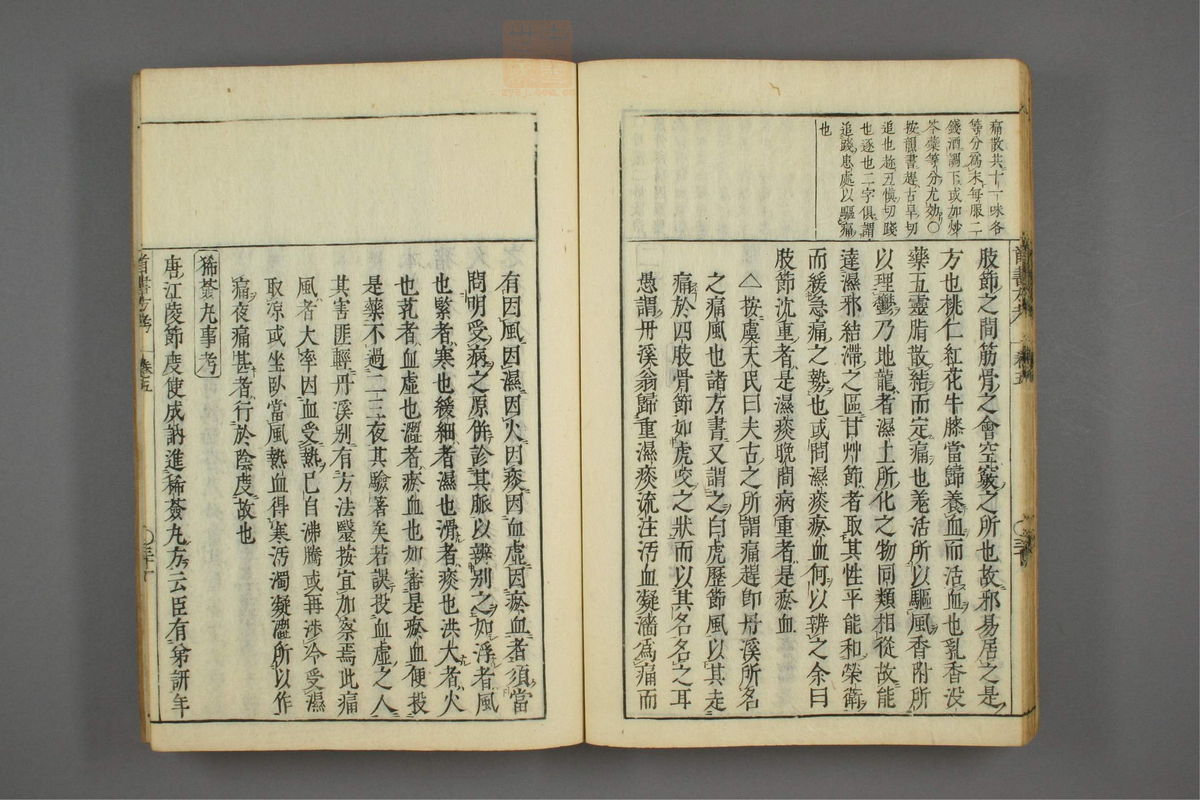 痛散共十一味各
等分爲末每服二
錢酒調下或加炒
芩蘗等分尤効○
按韻書趕古旱切
追也趂丑愼切踐
也逐也二字俱謂
追踐患處以驅痛
也
肢節之間筋骨之會空竅之所也故邪易居之是
方也桃仁紅花牛膝當歸養血而活血也乳香没
藥五靈脂散結而定痛也羗活所以驅風香附所
以理鬱乃地龍者濕土所化之物同類相從故能
達濕邪結滯之區甘艸節者取其性平能和榮衛
而緩急痛之勢也或問濕痰瘀血何以辨之余曰
肢節沈重者是濕痰晚間病重者是瘀血
△按虞天民曰夫古之所謂痛趕卽丹溪所名
之痛風也諸方書又謂之白虎歷節風以其走
痛於四肢骨節如虎咬之狀而以其名名之耳
愚謂丹溪翁歸重濕痰流注汚血凝濇爲痛而
首書方考
卷五
有因風因濕因火因痰因血虛因瘀血者須當
問明受病之原併診其脈以辨別之如浮者風
也緊者寒也緩細者濕也滑者痰也洪大者火
也芤者血虛也澀者瘀血也如審是瘀血便投
是藥不過二三夜其驗著矣若誤投血虛之人
其害匪輕丹溪別有方法毉按宜加察焉此痛
風者大率因血受熱已自沸騰或再渉冷受濕
取涼或坐臥當風熱血得寒汚濁凝澀所以作
痛夜痛甚者行於陰度故也
豨薟丸事考
唐江陵節度使成訥進豨薟丸方云臣有弟訮年
首書方考
卷五
三十